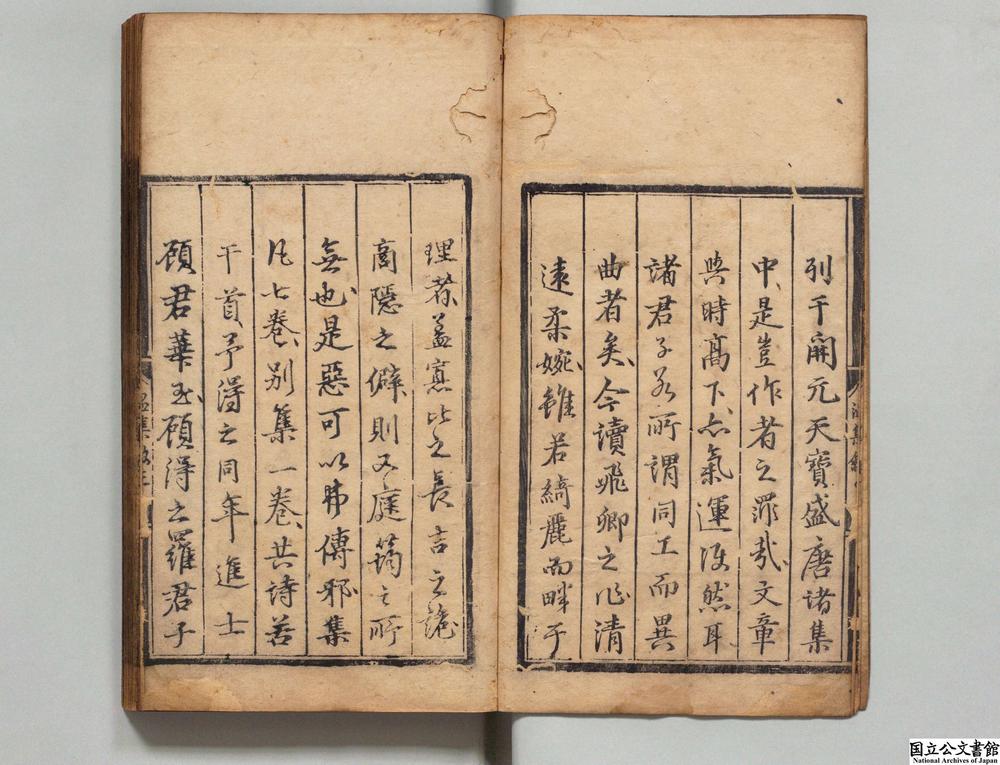 列于開元天寶盛唐諸集
中是豈作者之罪哉文章
與時髙下亦氣運使然耳
諸君子所謂同工而異
曲者矣今讀飛卿之作清
遠柔婉雖若綺麗而畔于
理者蓋寡比之長吉之詭
商隱之僻則又庭筠之所
無也是惡可以弗傳邪集
凡七卷別集一卷共詩若
干首予得之同年進士
顧君華玉顧得之羅君子
国立公文書館
National Archives of Japan